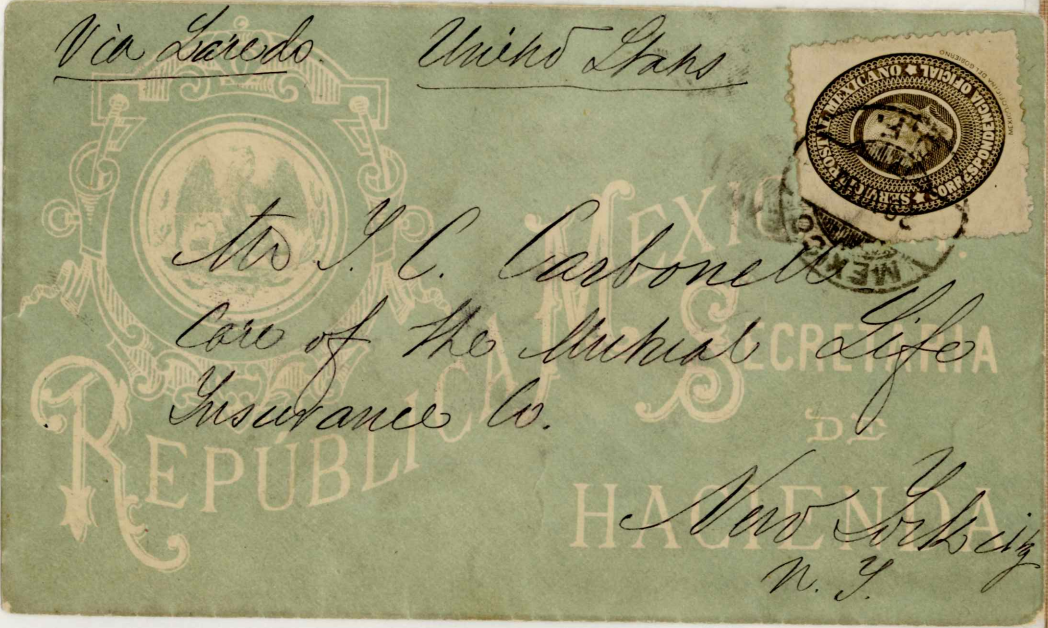 Via Laredo. United States
SERVICIO POSTAL MEXICANO
CORRESPONDENCIA OFICIAL
MEXICO
Mr J. C. Carbonell
Care of the Mutual Life
Insurance Co.
New York city
N. Y.
REPÚBLICA MEXICANA.
SECRETARIA
DE
HACIENDA